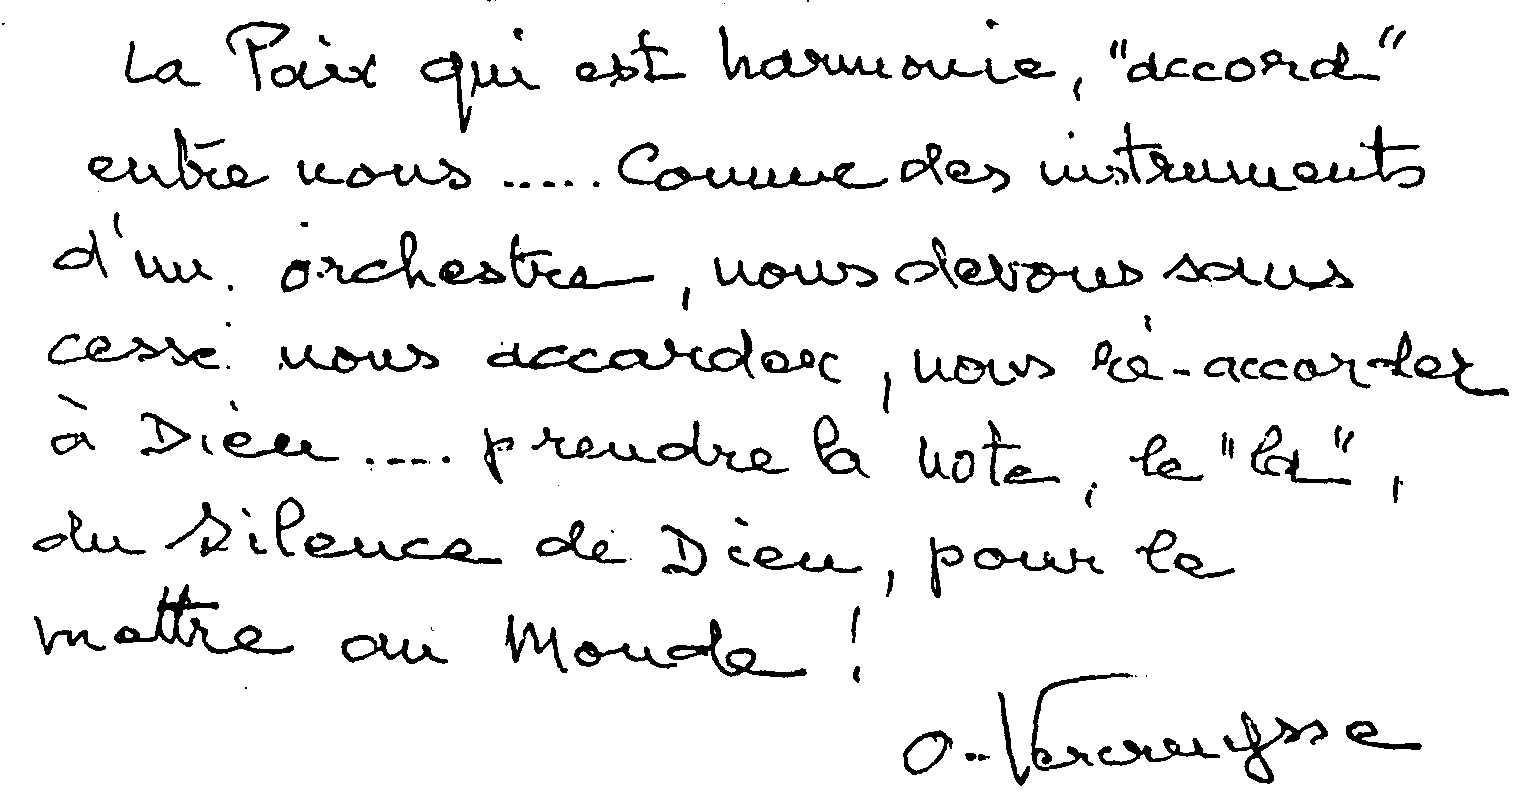 La Paix qui est harmonie, "accord"
entre nous ..... Comme des instruments
d'un orchestre, nous devons sans
cesse nous accorder, nous ré-accorder
à Dieu ..... prendre la note, le "la",
du silence de Dieu, pour le
mettre au Monde !
O. Vercruysse